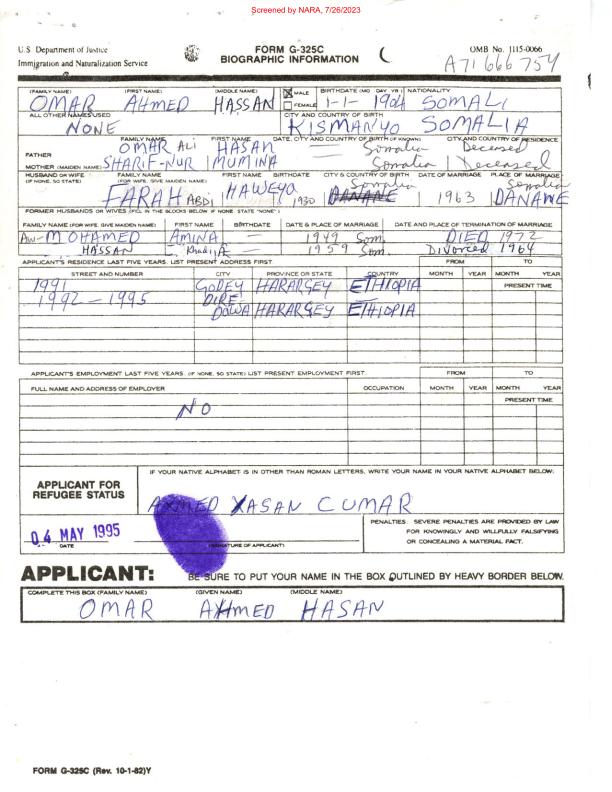 Screened by NARA, 7/26/2023
U.S. Department of Justice
Immigration and Naturalization Service
FORM G-325C
BIOGRAPHIC INFORMATION
OMB No. 1115-0066
A71 666 754
(FAMILY NAME) (FIRST NAME) (MIDDLE NAME) MALE FEMALE BIRTHDATE (MO. DAY YR.) NATIONALITY
OMAR AHMED HASSAN 1-1-1904 SOMALI
ALL OTHER NAMES USED CITY AND COUNTRY OF BIRTH
NONE KISMANYO SOMALIA
FAMILY NAME FIRST NAME DATE, CITY AND COUNTRY OF BIRTH (IF KNOWN) CITY AND COUNTRY OF RESIDENCE
FATHER OMAR ALI HASAN — Somalia Deceased
MOTHER (MAIDEN NAME) SHARIF-NUR MUMINA — Somalia Deceased
HUSBAND OR WIFE (IF NONE, SO STATE) FAMILY NAME (FOR WIFE, GIVE MAIDEN NAME) FIRST NAME BIRTHDATE CITY & COUNTRY OF BIRTH DATE OF MARRIAGE PLACE OF MARRIAGE
FARAH ABDI HAWEYO 1930 DANANE Somalia 1963 Somalia DANANE
FORMER HUSBANDS OR WIVES (FILL IN THE BLOCKS BELOW IF NONE, STATE "NONE")
FAMILY NAME (FOR WIFE, GIVE MAIDEN NAME) FIRST NAME BIRTHDATE DATE & PLACE OF MARRIAGE DATE AND PLACE OF TERMINATION OF MARRIAGE
AW-MOHAMED AMINA — 1949 Som. DIED 1972
HASSAN KhadijA — 1959 Som. Divorced 1964
APPLICANT'S RESIDENCE LAST FIVE YEARS. LIST PRESENT ADDRESS FIRST. FROM TO
STREET AND NUMBER CITY PROVINCE OR STATE COUNTRY MONTH YEAR MONTH YEAR
1991 GODEY HARARGEY ETHIOPIA PRESENT TIME
1992-1995 DIRE DOWA HARARGEY ETHIOPIA
APPLICANT'S EMPLOYMENT LAST FIVE YEARS. (IF NONE, SO STATE) LIST PRESENT EMPLOYMENT FIRST. FROM TO
FULL NAME AND ADDRESS OF EMPLOYER OCCUPATION MONTH YEAR MONTH YEAR
PRESENT TIME
NO
IF YOUR NATIVE ALPHABET IS IN OTHER THAN ROMAN LETTERS, WRITE YOUR NAME IN YOUR NATIVE ALPHABET BELOW:
APPLICANT FOR
REFUGEE STATUS
AXMED XASAN CUMAR
04 MAY 1995
DATE
(SIGNATURE OF APPLICANT)
PENALTIES: SEVERE PENALTIES ARE PROVIDED BY LAW
FOR KNOWINGLY AND WILLFULLY FALSIFYING
OR CONCEALING A MATERIAL FACT.
APPLICANT: BE SURE TO PUT YOUR NAME IN THE BOX OUTLINED BY HEAVY BORDER BELOW.
COMPLETE THIS BOX (FAMILY NAME) (GIVEN NAME) (MIDDLE NAME)
OMAR AHMED HASAN
FORM G-325C (Rev. 10-1-82)Y